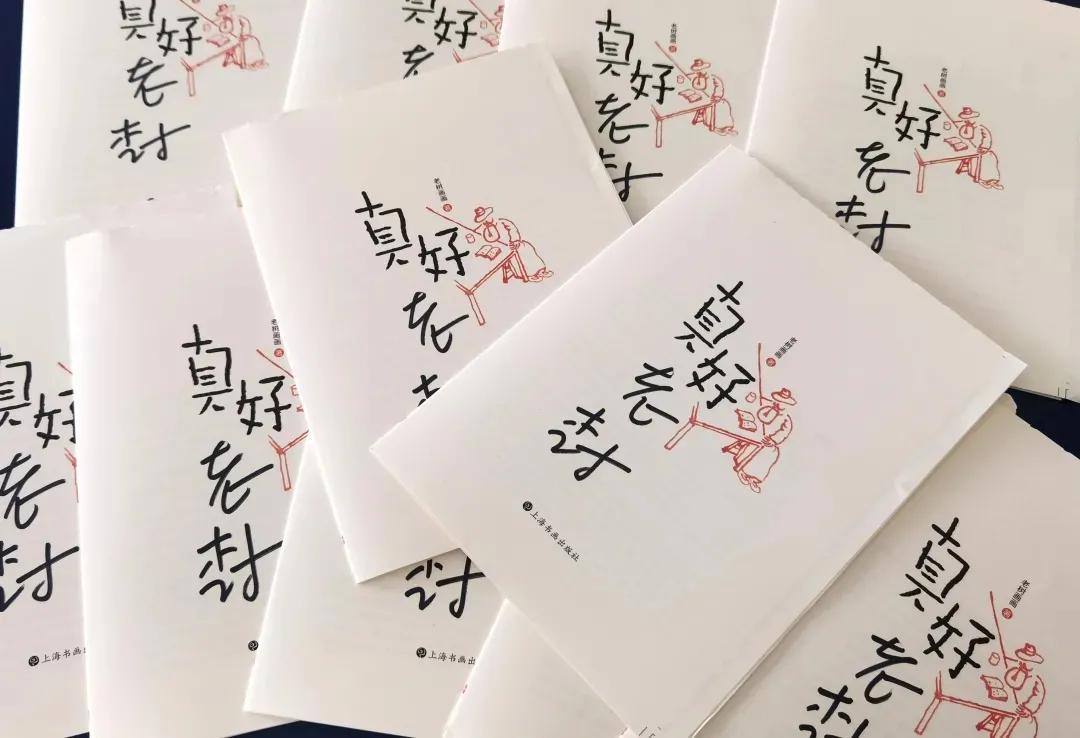 真好
老树
真好
老
老树画画 著
真好
老树
老树画画 著
真好
老树
老树画画 著
真好
老
老树画画 著
真好
老树
上海书画出版社
真好
老树
上海书画出
老树画画 著
真好
老树
树
上海书画出
老树画画 著
真好
老树